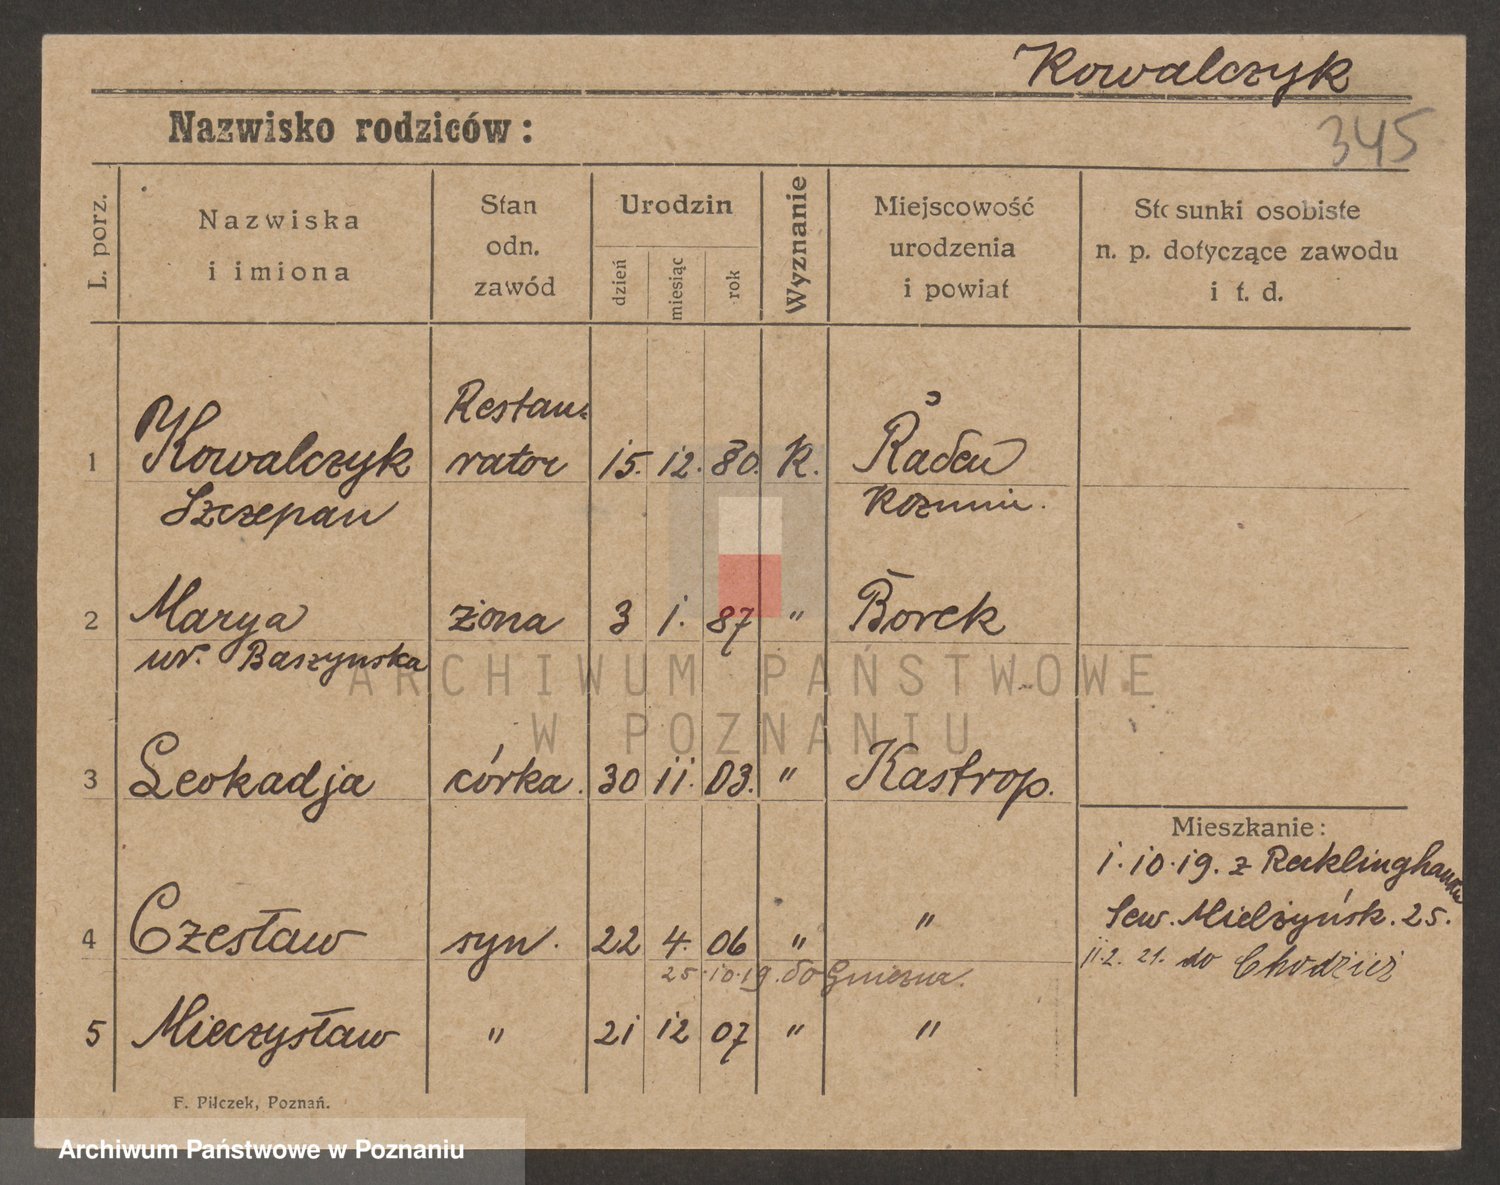 Kowalczyk
345
Nazwisko rodziców:
L. porz.
Nazwiska i imiona
Stan odn. zawód
Urodzin
dzień
miesiąc
rok
Wyznanie
Miejscowość urodzenia i powiat
Stosunki osobiste n. p. dotyczące zawodu i t. d.
Restau-
1 Kowalczyk rator 15. 12. 80. K.
Szczepan Kozmin.
2 Marya żona 3 1. 87 " Borek
ur. Baszynska
3 Leokadja córka. 30 11. 03. " Kastrop.
Mieszkanie:
1.10.19. z Recklinghausen
Sew. Mielżyńsk. 25.
11.2. 21. do Chodzież
4 Czesław syn. 22 4. 06 " "
25.10.19. do Gniezna.
5 Mieczysław " 21 12 07 " "
F. Pilczek, Poznań.
ARCHIWUM PAŃSTWOWE
W POZNANIU
Archiwum Państwowe w Poznaniu